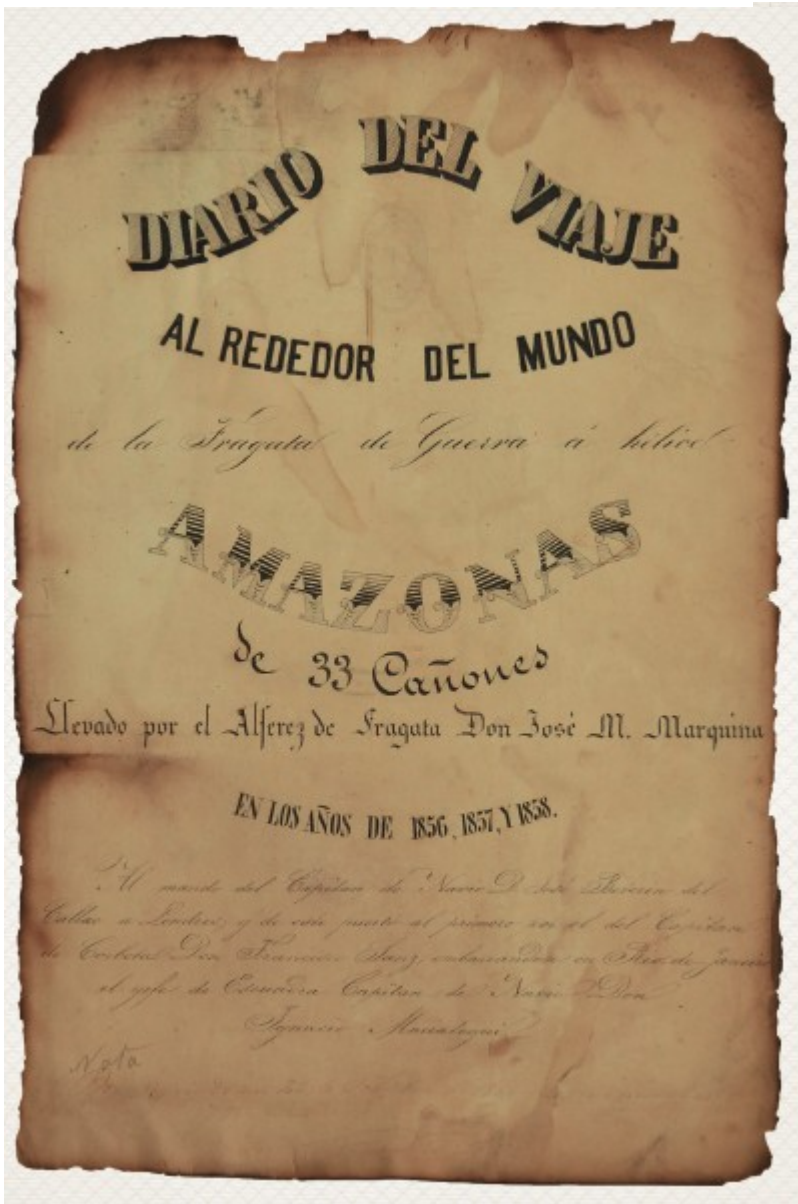 DIARIO DEL VIAJE
AL REDEDOR DEL MUNDO
de la Fragata de Guerra á hélice
AMAZONAS
de 33 Cañones
Llevado por el Alferez de Fragata Don José M. Marquina
EN LOS AÑOS DE 1856, 1857, Y 1858.
Al mando del Capitan de Navio D. José del
Callao a Londres, y de este puerto al primero con el del Capitan
de Corbeta Don Francisco Sanz, embarcandose en Rio de Janeiro
el gefe de Escuadra Capitan de Navio Don
Ignacio Mariategui
Nota